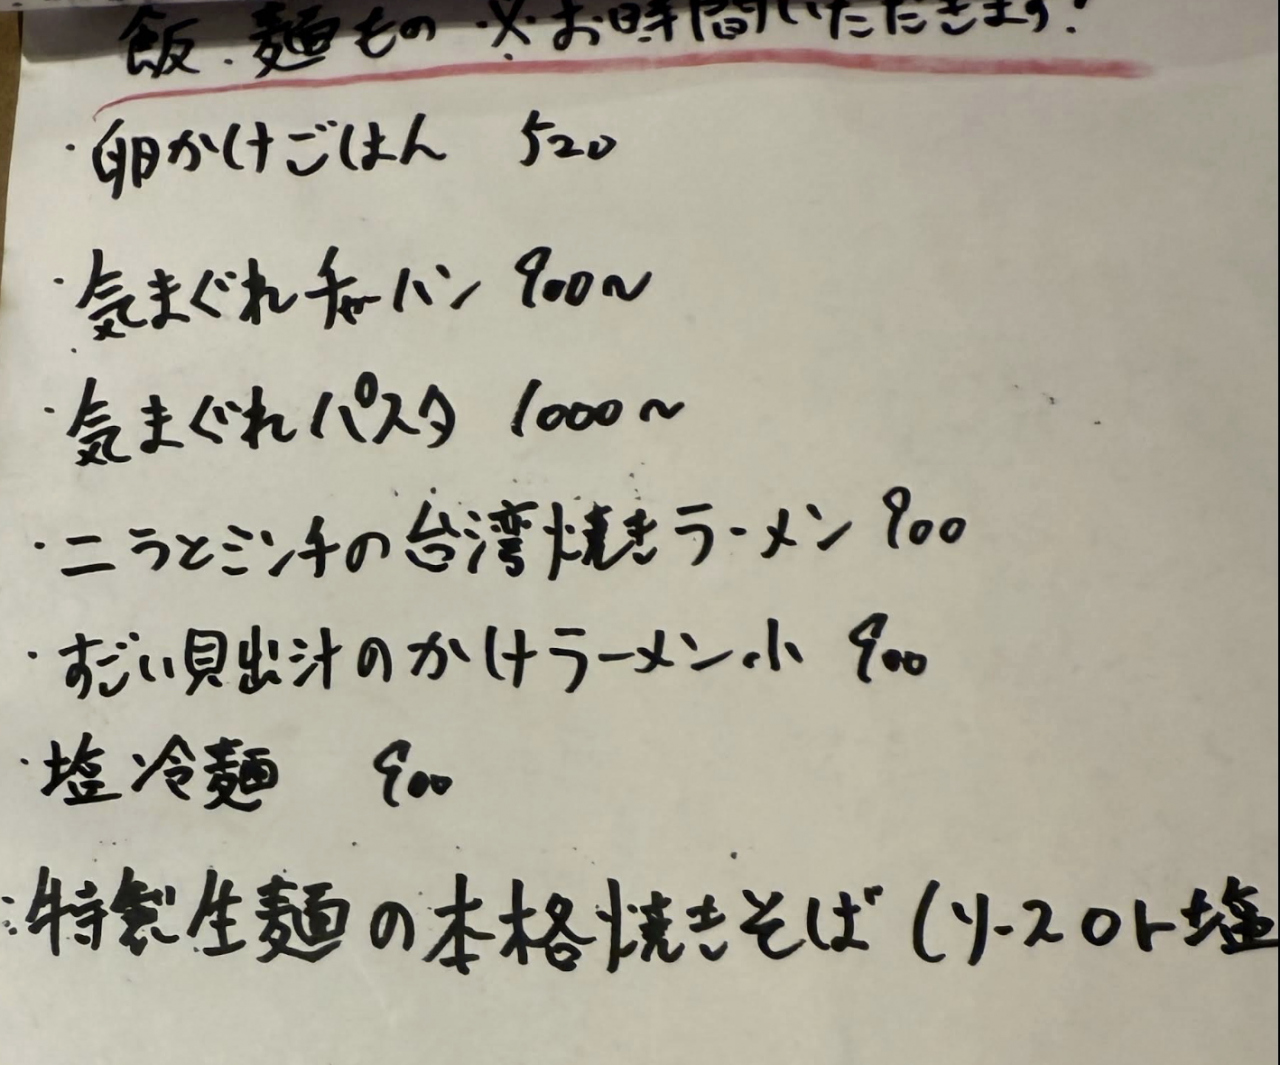 飯.麺もの ※お時間いただきます!
・卵かけごはん 520
・気まぐれチャーハン 900～
・気まぐれパスタ 1000～
・ニラとミンチの台湾焼きラーメン 900
・すごい貝出汁のかけラーメン小 900
・塩冷麺 900
・特製生麺の本格焼きそば (ソースor塩